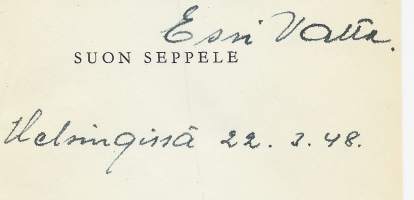 Essi Vatta.
SUON SEPPELE
Helsingissä 22. 3. 48.